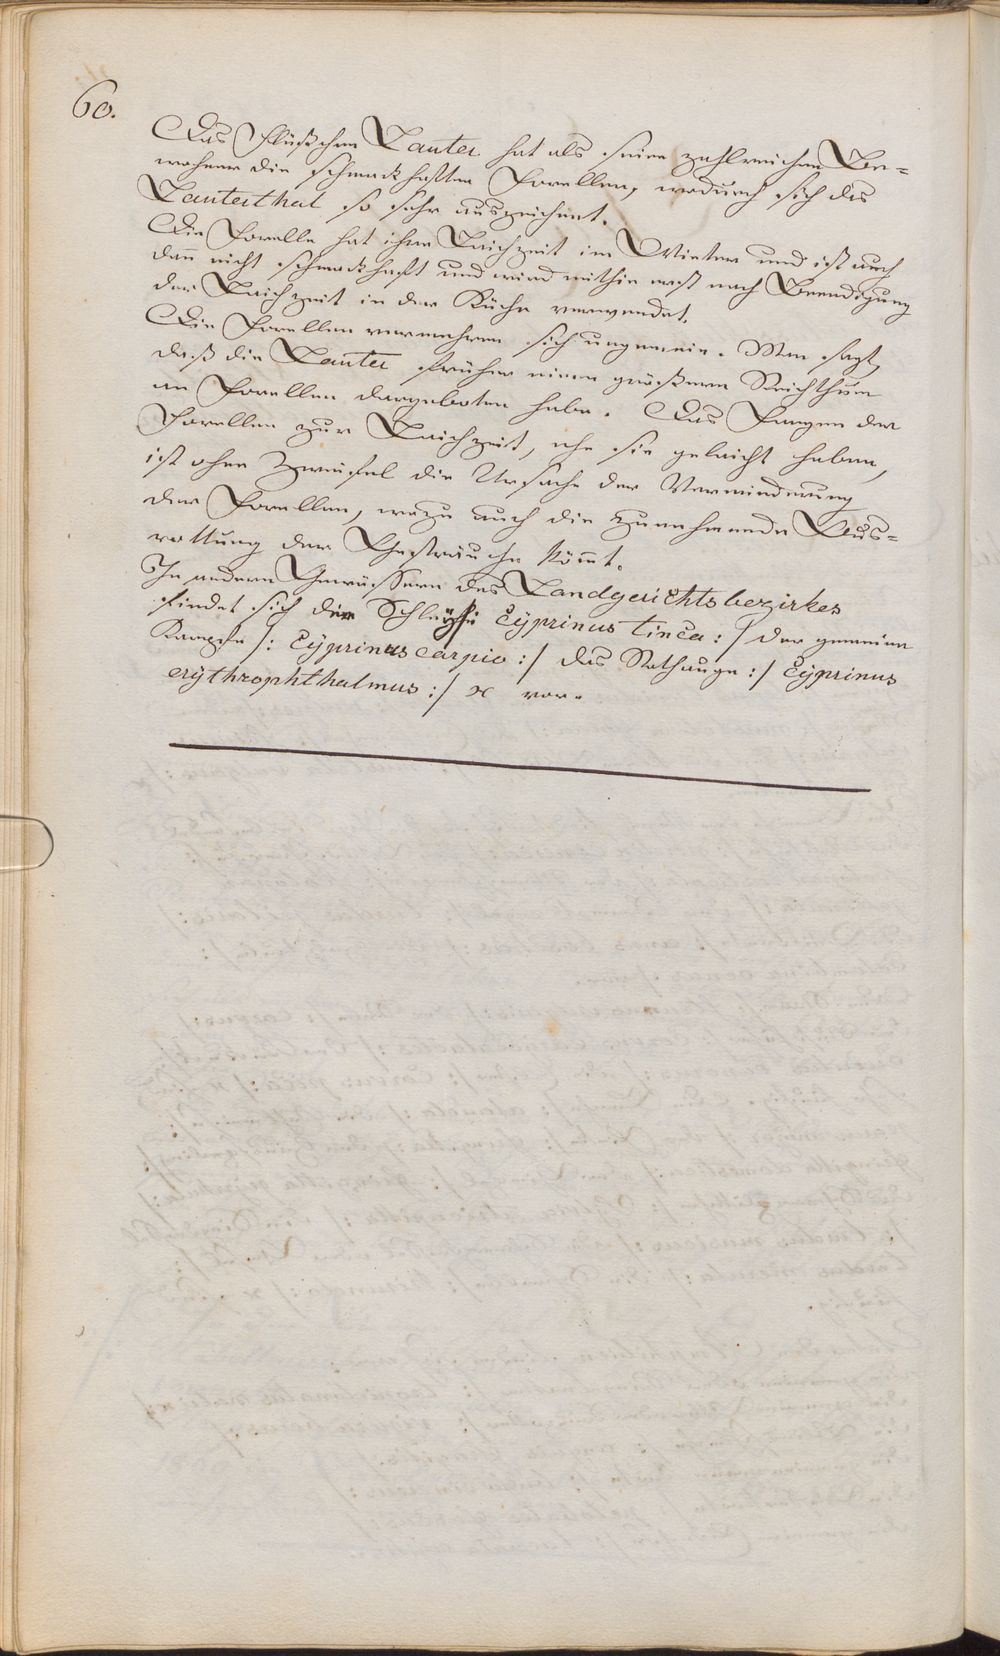 60.
Das Flüßchen Lauter hat als seine zahlreichen Be=
wohner die schmackhaften Forellen, wodurch sich das
Lauterthal so sehr auszeichnet.
Die Forelle hat ihre Laichzeit im Winter und ist auch
dan̄ nicht schmackhaft und wird mithin erst nach Beendigung
der Laichzeit in der Küche verwendet.
Die Forellen vermehren sich ungemein. Man sagt,
daß die Lauter früher einen größeren Reichthum
an Forellen dargeboten habe. Das Fangen der
Forellen zur Laichzeit, ehe sie gelaicht haben,
ist ohne Zweifel die Ursache der Verminderung
der Forellen, wozu auch die zunehmende Aus=
rottung der Gesträuche kom̄t.
In andern Gewässern des Landgerichtsbezirkes
findet sich die Schleyhe Cyprinus tinca :/ der gemeine
Karpfe /: Cyprinus carpio :/ das Rothauge :/ Cyprinus
erythrophthalmus :/ vor.